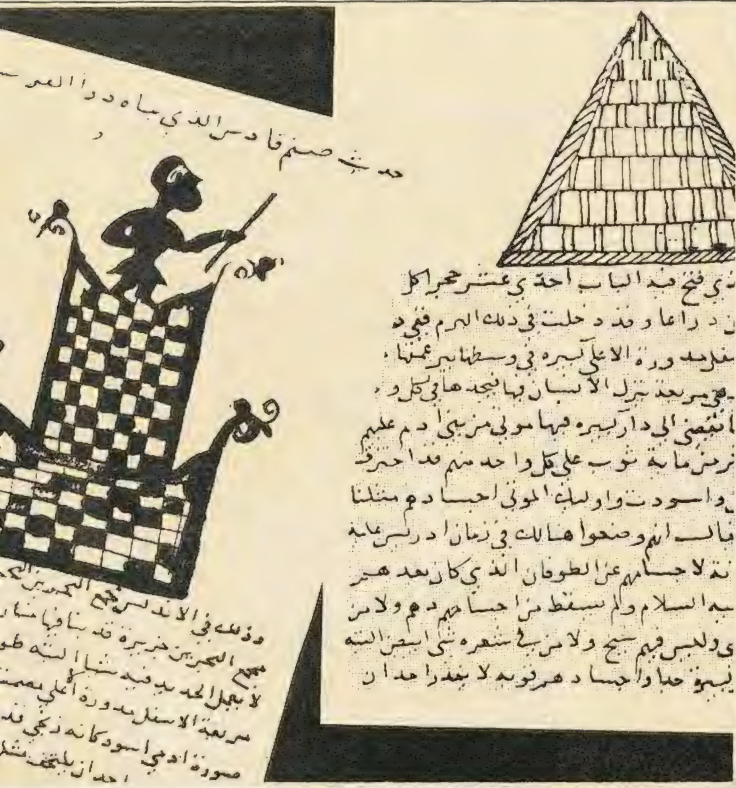 حدث صنم قادس الذي بناه ذو القر
ذي فتح فيه الباب احدى عشر حجرا كل
ن ذراعا وقد دخلت في ذلك الهرم ففي
مدورة الاعلى كبيرة في وسطها بير عمقها
مربعة ينزل الانسان فيها فيجدها في كل و
الى دار كبيرة فيها موتى من بني ادم عليهم
من ماية ثوب على كل واحد منهم قد احترق
واسودت واوليك الموتى اجسادهم مثلنا
انهم وضعوا هنالك في زمان ادريس عليه
لاجسامهم عن الطوفان الذي كان بعد هم
السلام ولم يسقط من اجسامهم دهم ولا من
وليس فيهم شيخ ولا من في شعره شي ابيض البته
كبيرة جدا واجسادهم قويه لا يقدر احد ان
وذلك في الاندلس مجمع البحرين
مجمع البحرين جزيرة قد بنا فيها منار
لا يعمل الحديد فيه شيا البته
مربعة الاسفل مدورة اعلى
صورة ادمي اسود كانه زنجي قد
احدا ان يلتحف